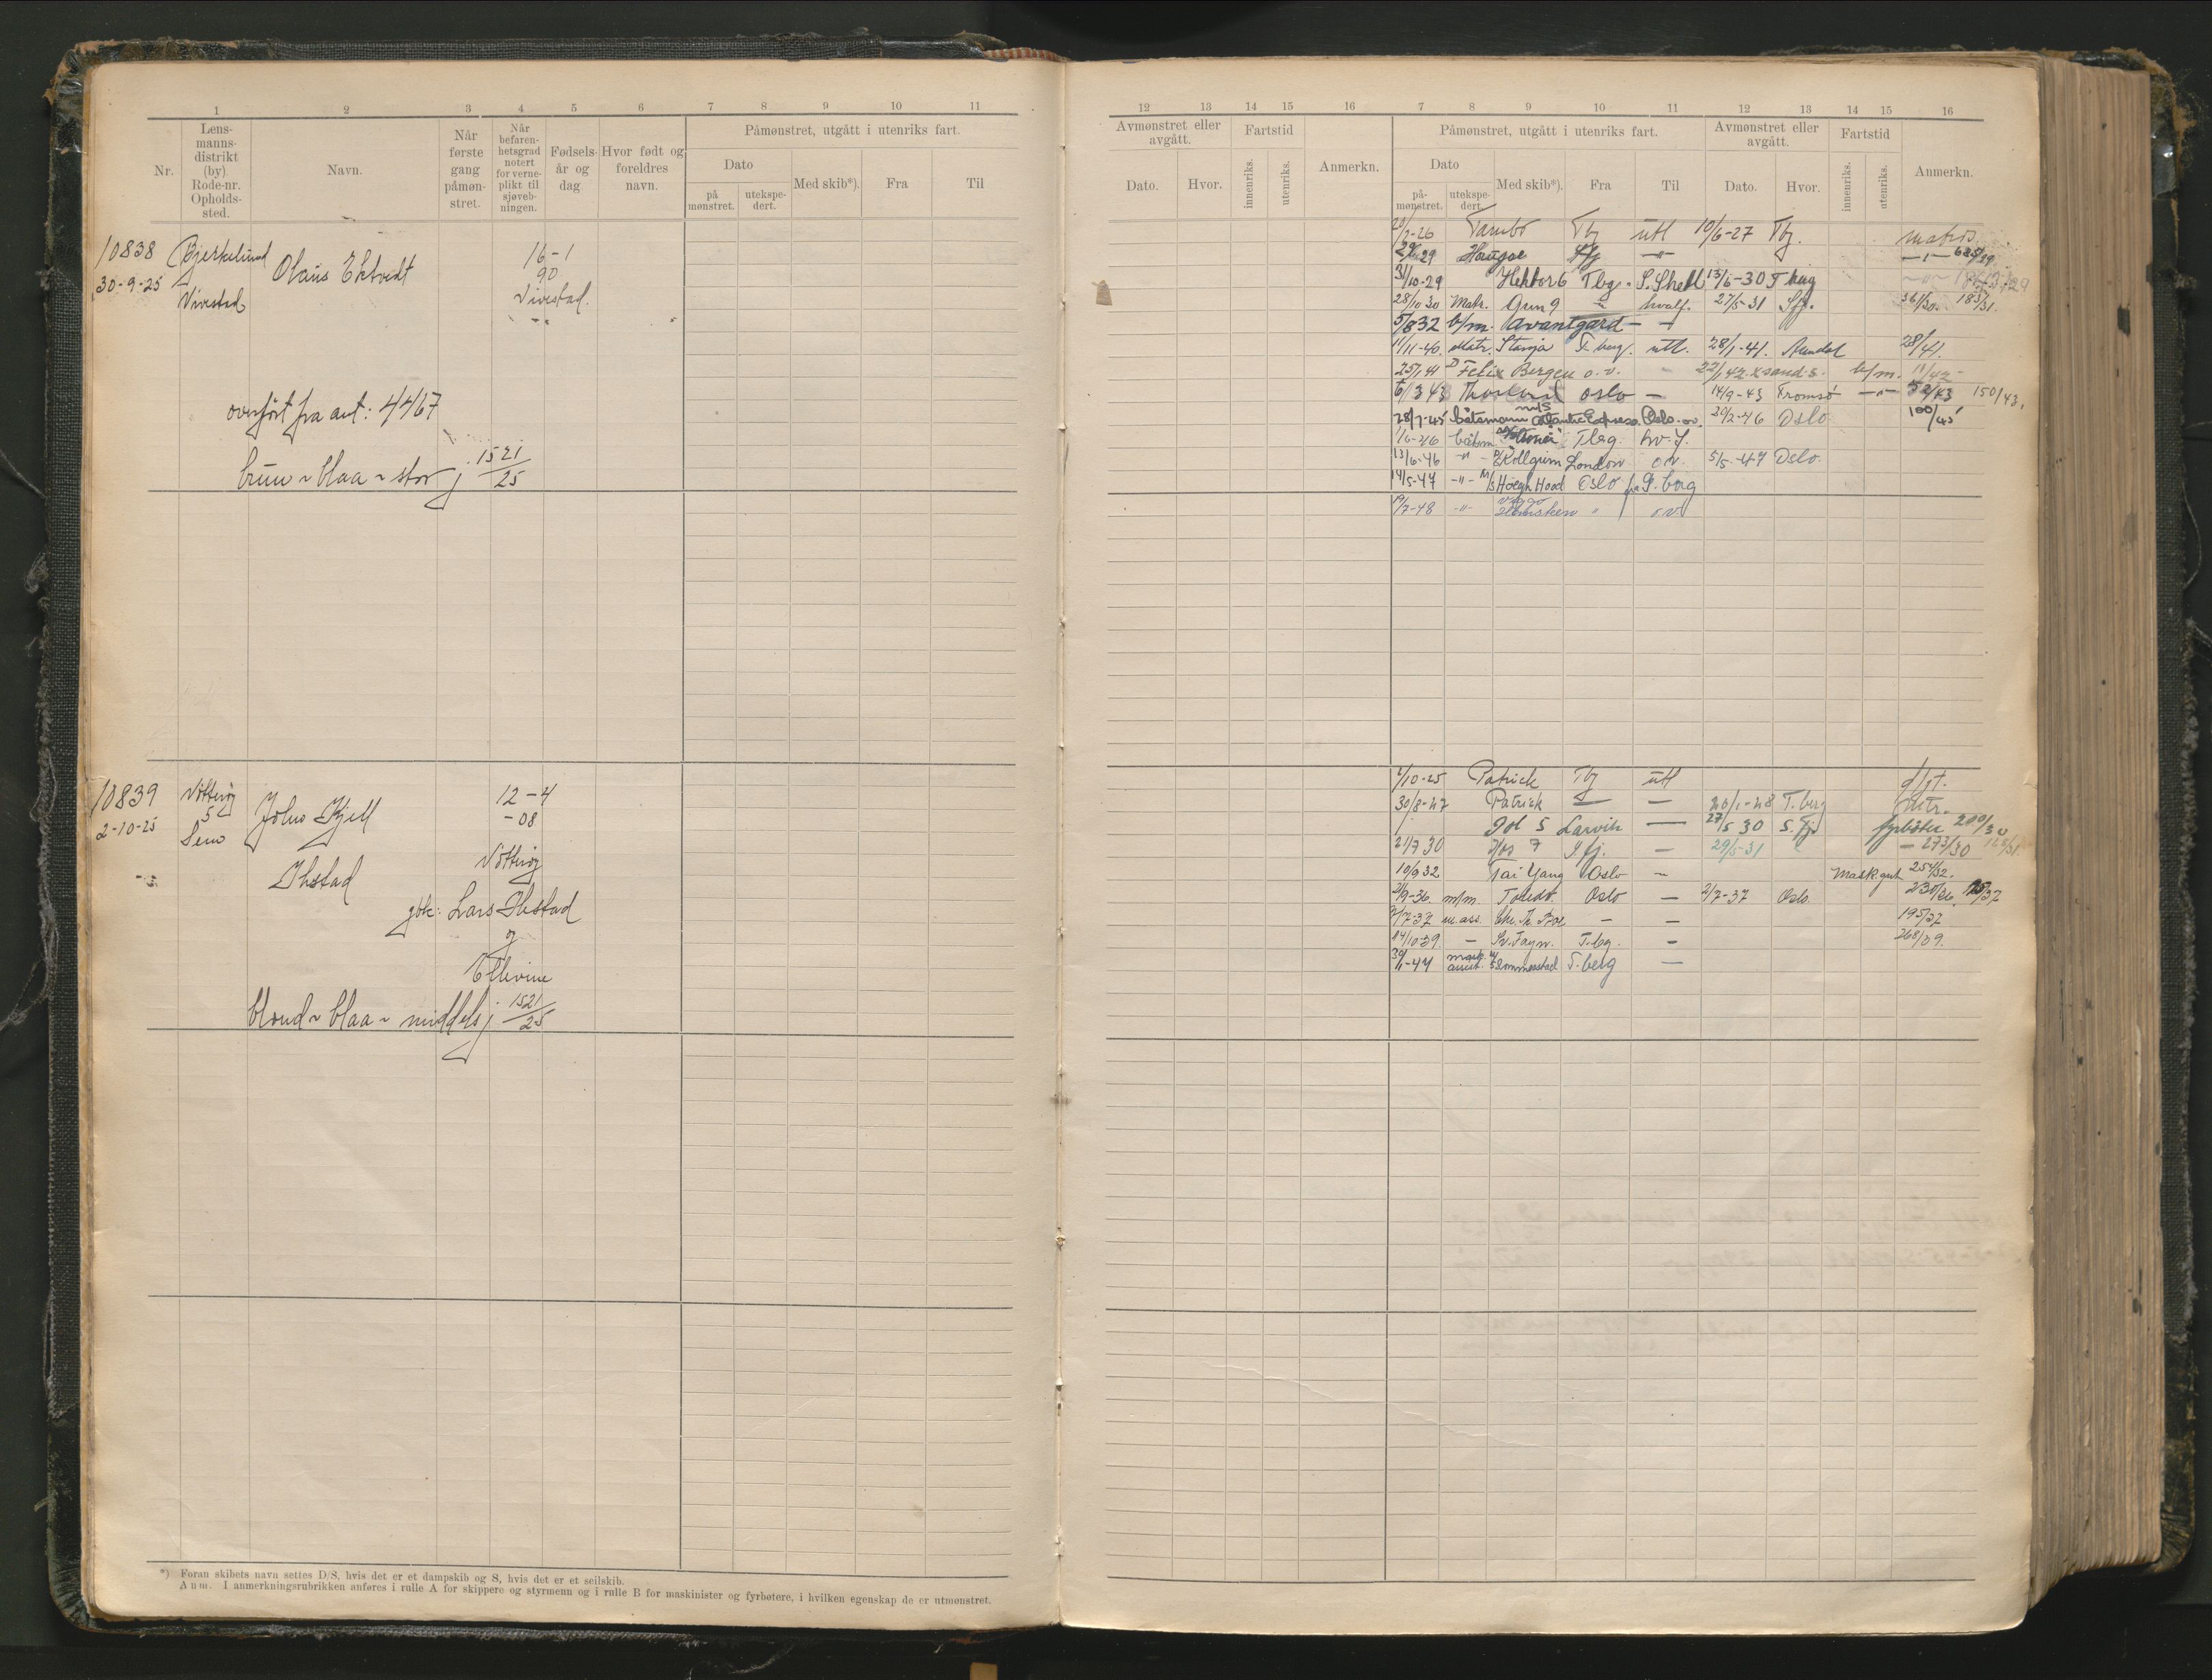 1 2 3 4 5 6 7 8 9 10 11
Nr.
Lens-
manns-
distrikt
(by).
Rode-nr.
Opholds-
sted.
Navn.
Når
første
gang
påmøn-
stret.
Når
befaren-
hetsgrad
notert
for verne-
plikt til
sjøveb-
ningen.
Fødsels-
år og
dag
Hvor født og
foreldres
navn.
Påmønstret, utgått i utenriks fart.
Dato
på
mønstret.
utekspe-
dert.
Med skib*).
Fra
Til
10838
30-9-25
Bjerkelund
Vivestad
Olaus Ektvedt
16-1
90
Vivestad.
overført fra ant: 4467
brun ~ blaa ~ stor j. 1521/25
10839
2-10-25
Nøtterøy
5
Sem
John Kjell
Ihstad
12-4
-08
Nøtterøy
gbk: Lars Ihstad
og
Ellevine
blond ~ blaa ~ middels j. 1521/25
*) Foran skibets navn settes D/S, hvis det er et dampskib og S, hvis det er et seilskib.
Anm. I anmerkningsrubrikken anføres i rulle A for skippere og styrmenn og i rulle B for maskinister og fyrbøtere, i hvilken egenskap de er utmønstret.
12 13 14 15 16 7 8 9 10 11 12 13 14 15 16
Avmønstret eller
avgått.
Dato.
Hvor.
Fartstid
innenriks.
utenriks.
Anmerkn.
Påmønstret, utgått i utenriks fart.
Dato
på-
mønstret.
utekspe-
dert.
Med skib*).
Fra
Til
Avmønstret eller
avgått.
Dato.
Hvor.
Fartstid
innenriks.
utenriks.
Anmerkn.
/2-26 Tby utl 10/6-27 Tby. matros
29 Haugar Sfj -"-
31/10-29 Hektor 6 Tbg. S. Shetl 13/6-30 T berg
28/10 30 Matr. Orun 9 " hvalf. 27/5-31 Sfj. 361/30. 183/31.
5/8 32 b/m. Avantgard - -
11/11-40. Matr. Stanja T. berg. utl. 28/1-41. Arendal 28/41.
25/1 41 D Felix Bergen o.v. - 22/1 42 Xsand s. b/m. 11/42
6/3 43 Oslo - 14/9-43 Tromsø -"- 150/43.
28/7-45 båtsmann m/S Atlantic Express Oslo o.v. 20/2-46 Oslo 100/45
1/6-46 båtsm Tbrg. hv.f.
13/6-46 -"- D/S Kollgrim London o.v. 5/5-47 Oslo.
14/5-47 -"- M/S Høegh Hood Oslo fra G. borg
19/7-48 -"- Viggo Hansteen " o.v
2/10-25 Patrick Tby utl
30/8-27 Patrick - - 20/1-28 T. berg
Pol 5 Larvik - 27/5 30 S. fj. fyrbøter 200/30
21/7 30 7 S fj. - 29/5-31 " - 273/30
10/9 32 Tai Yang Oslo - Mask gut 254/32.
2/9-36. m/m. Toledo. Oslo - 2/7-37 Oslo. 230/36.
2/7-37 m.ass. Chr. Th. Boe - - 195/37
14/10-39. - Sv. Foyn. T.bg. - 268/39.
30/1-47 mask. assist. M/S Sommerstad T. berg -